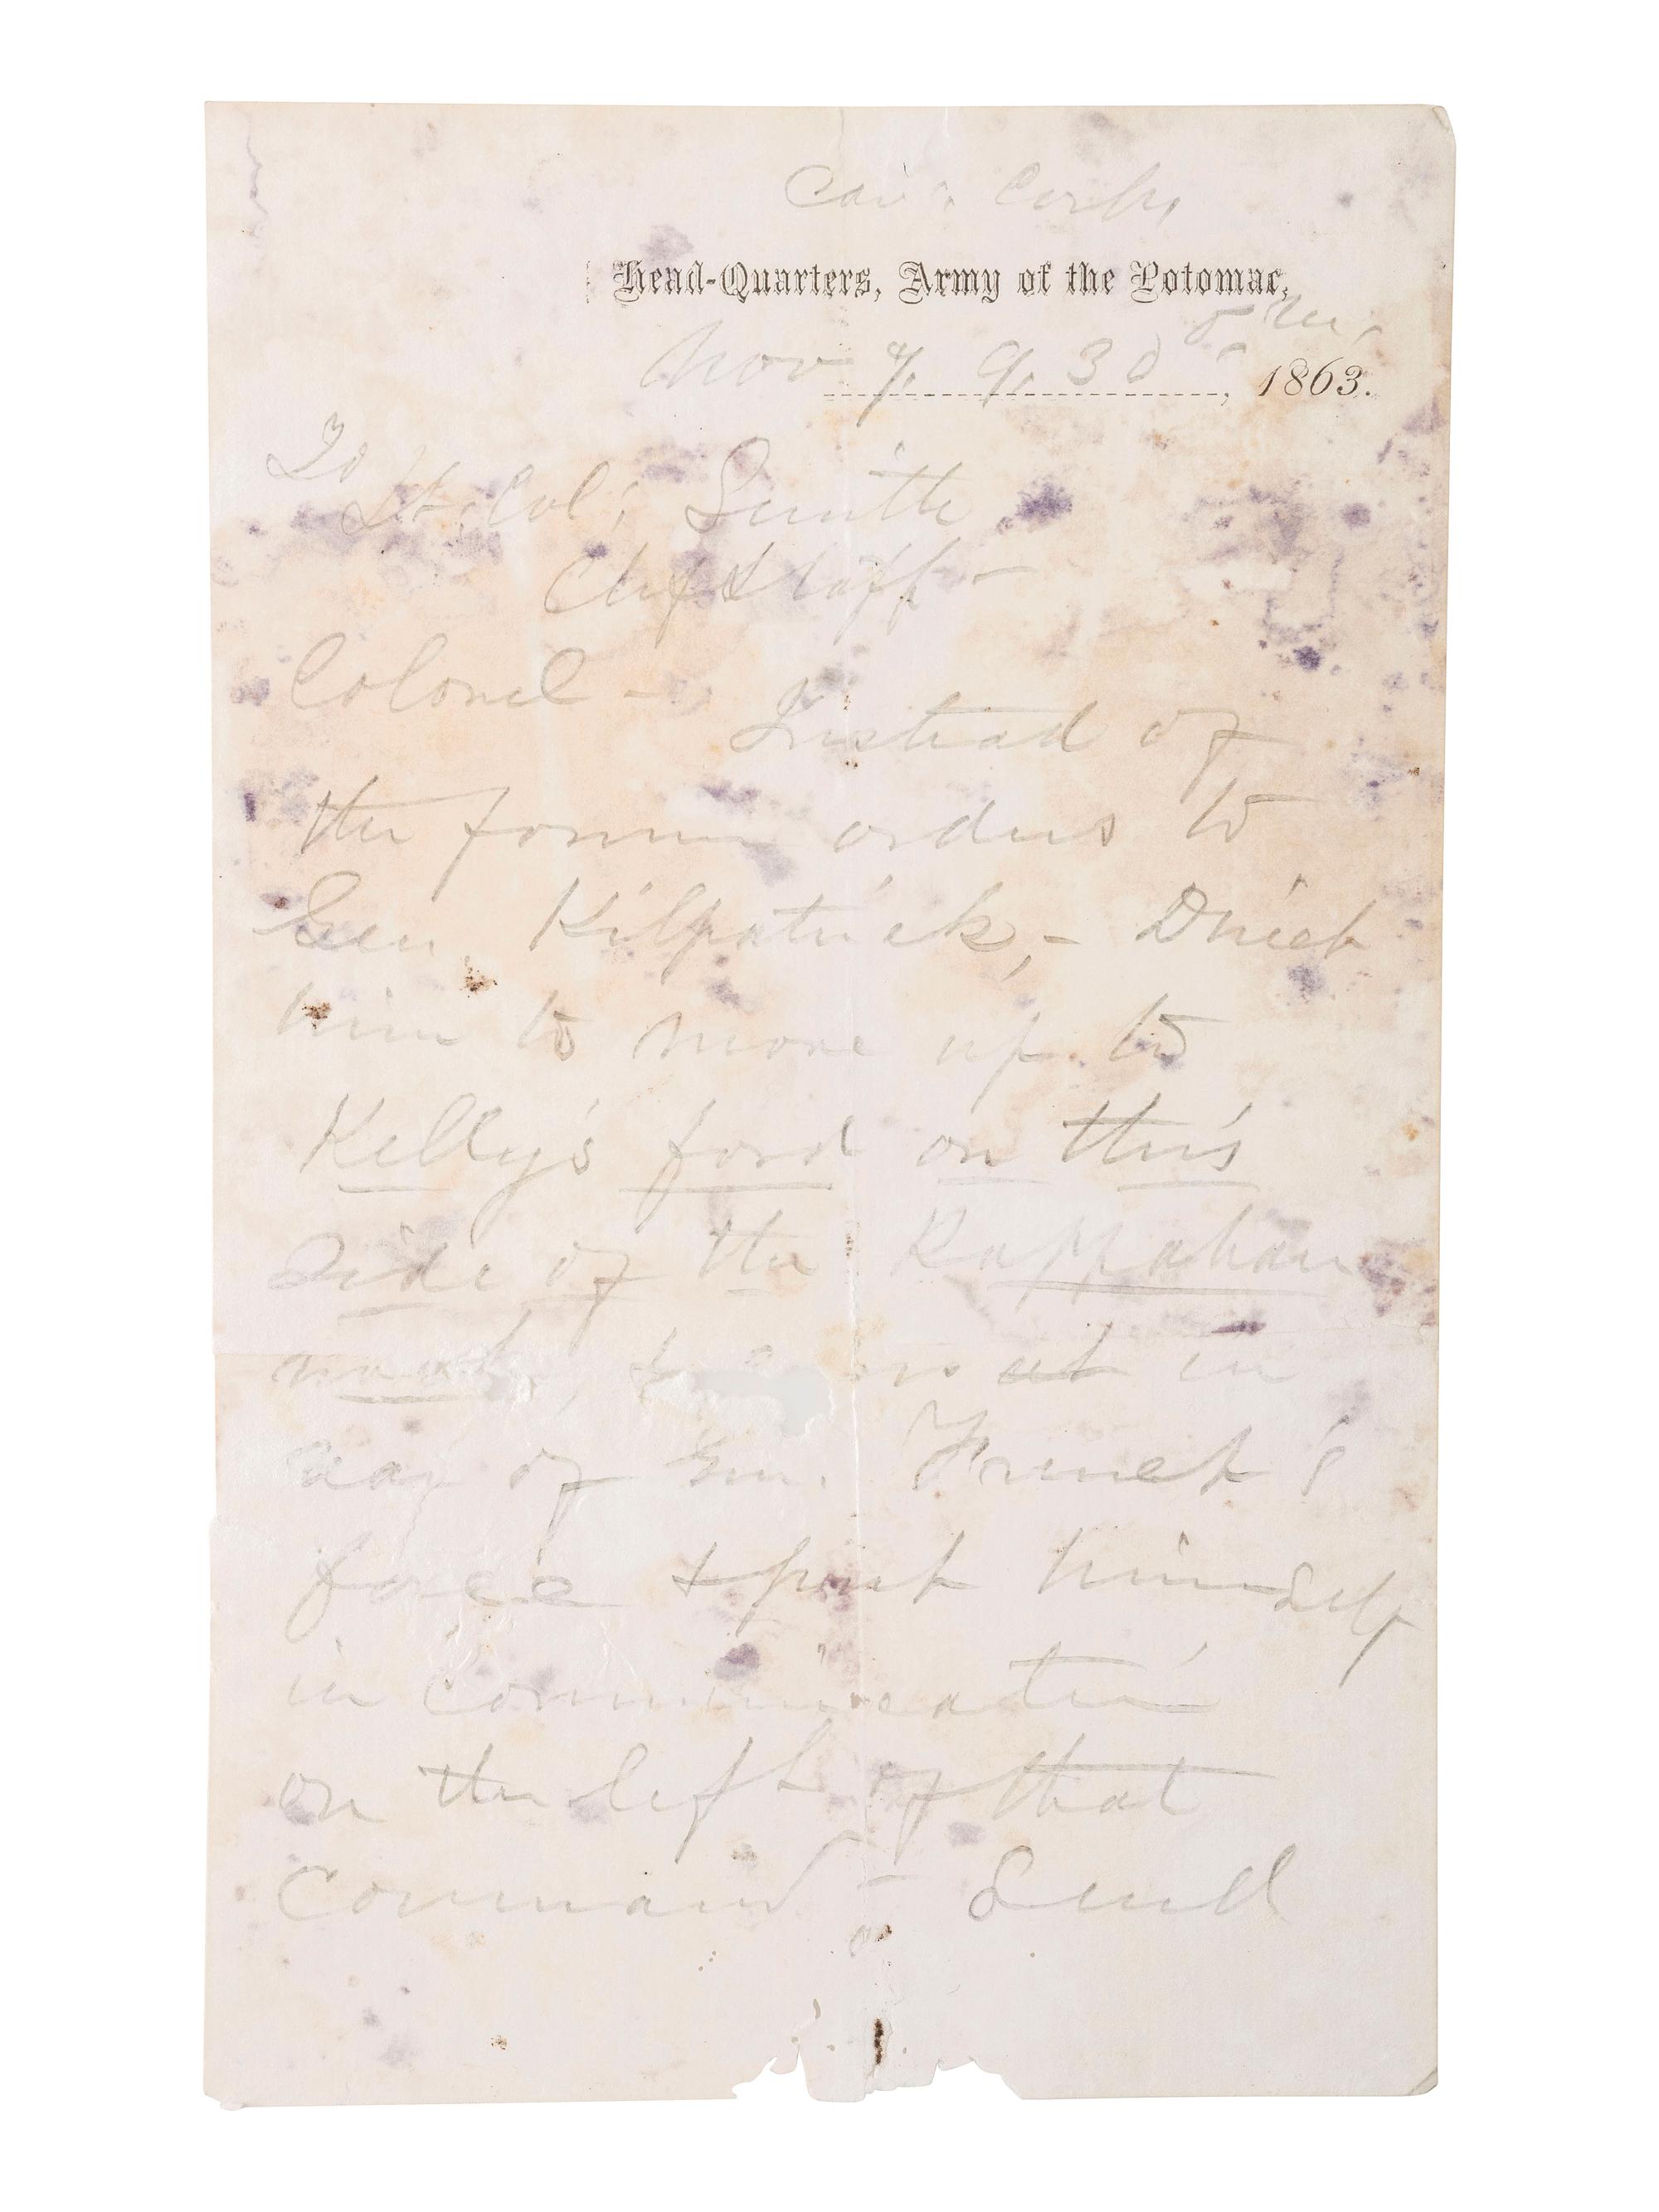 Cav. Corps
Head-Quarters, Army of the Potomac,
P.M.
Nov 7. 9.30 , 1863.
To
Lt. Col. Smith
Chf Staff -
Colonel - Instead of
the former orders to
Gen. Kilpatrick, - Direct
him to move up to
Kelly's ford on this
side of the Rappahan
nock, & in
rear of Gen. French's
force & put himself
in communication
on the left of that
Command - Send